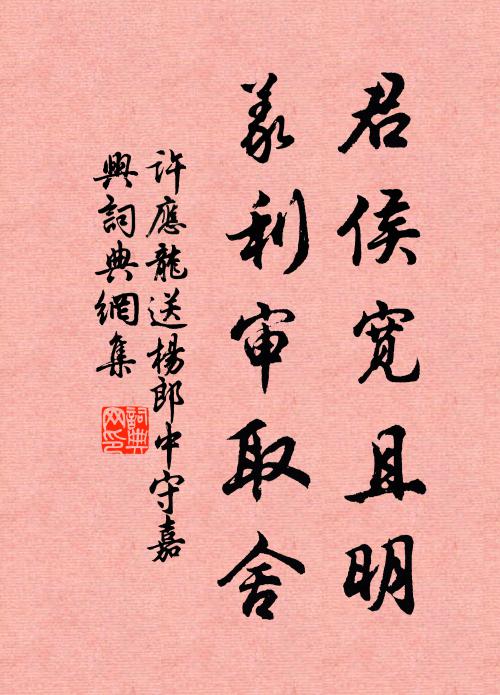 君侯宽且明
義利审取舍
許應龍送楊郎中守嘉
興詞典網集
詞典
网印